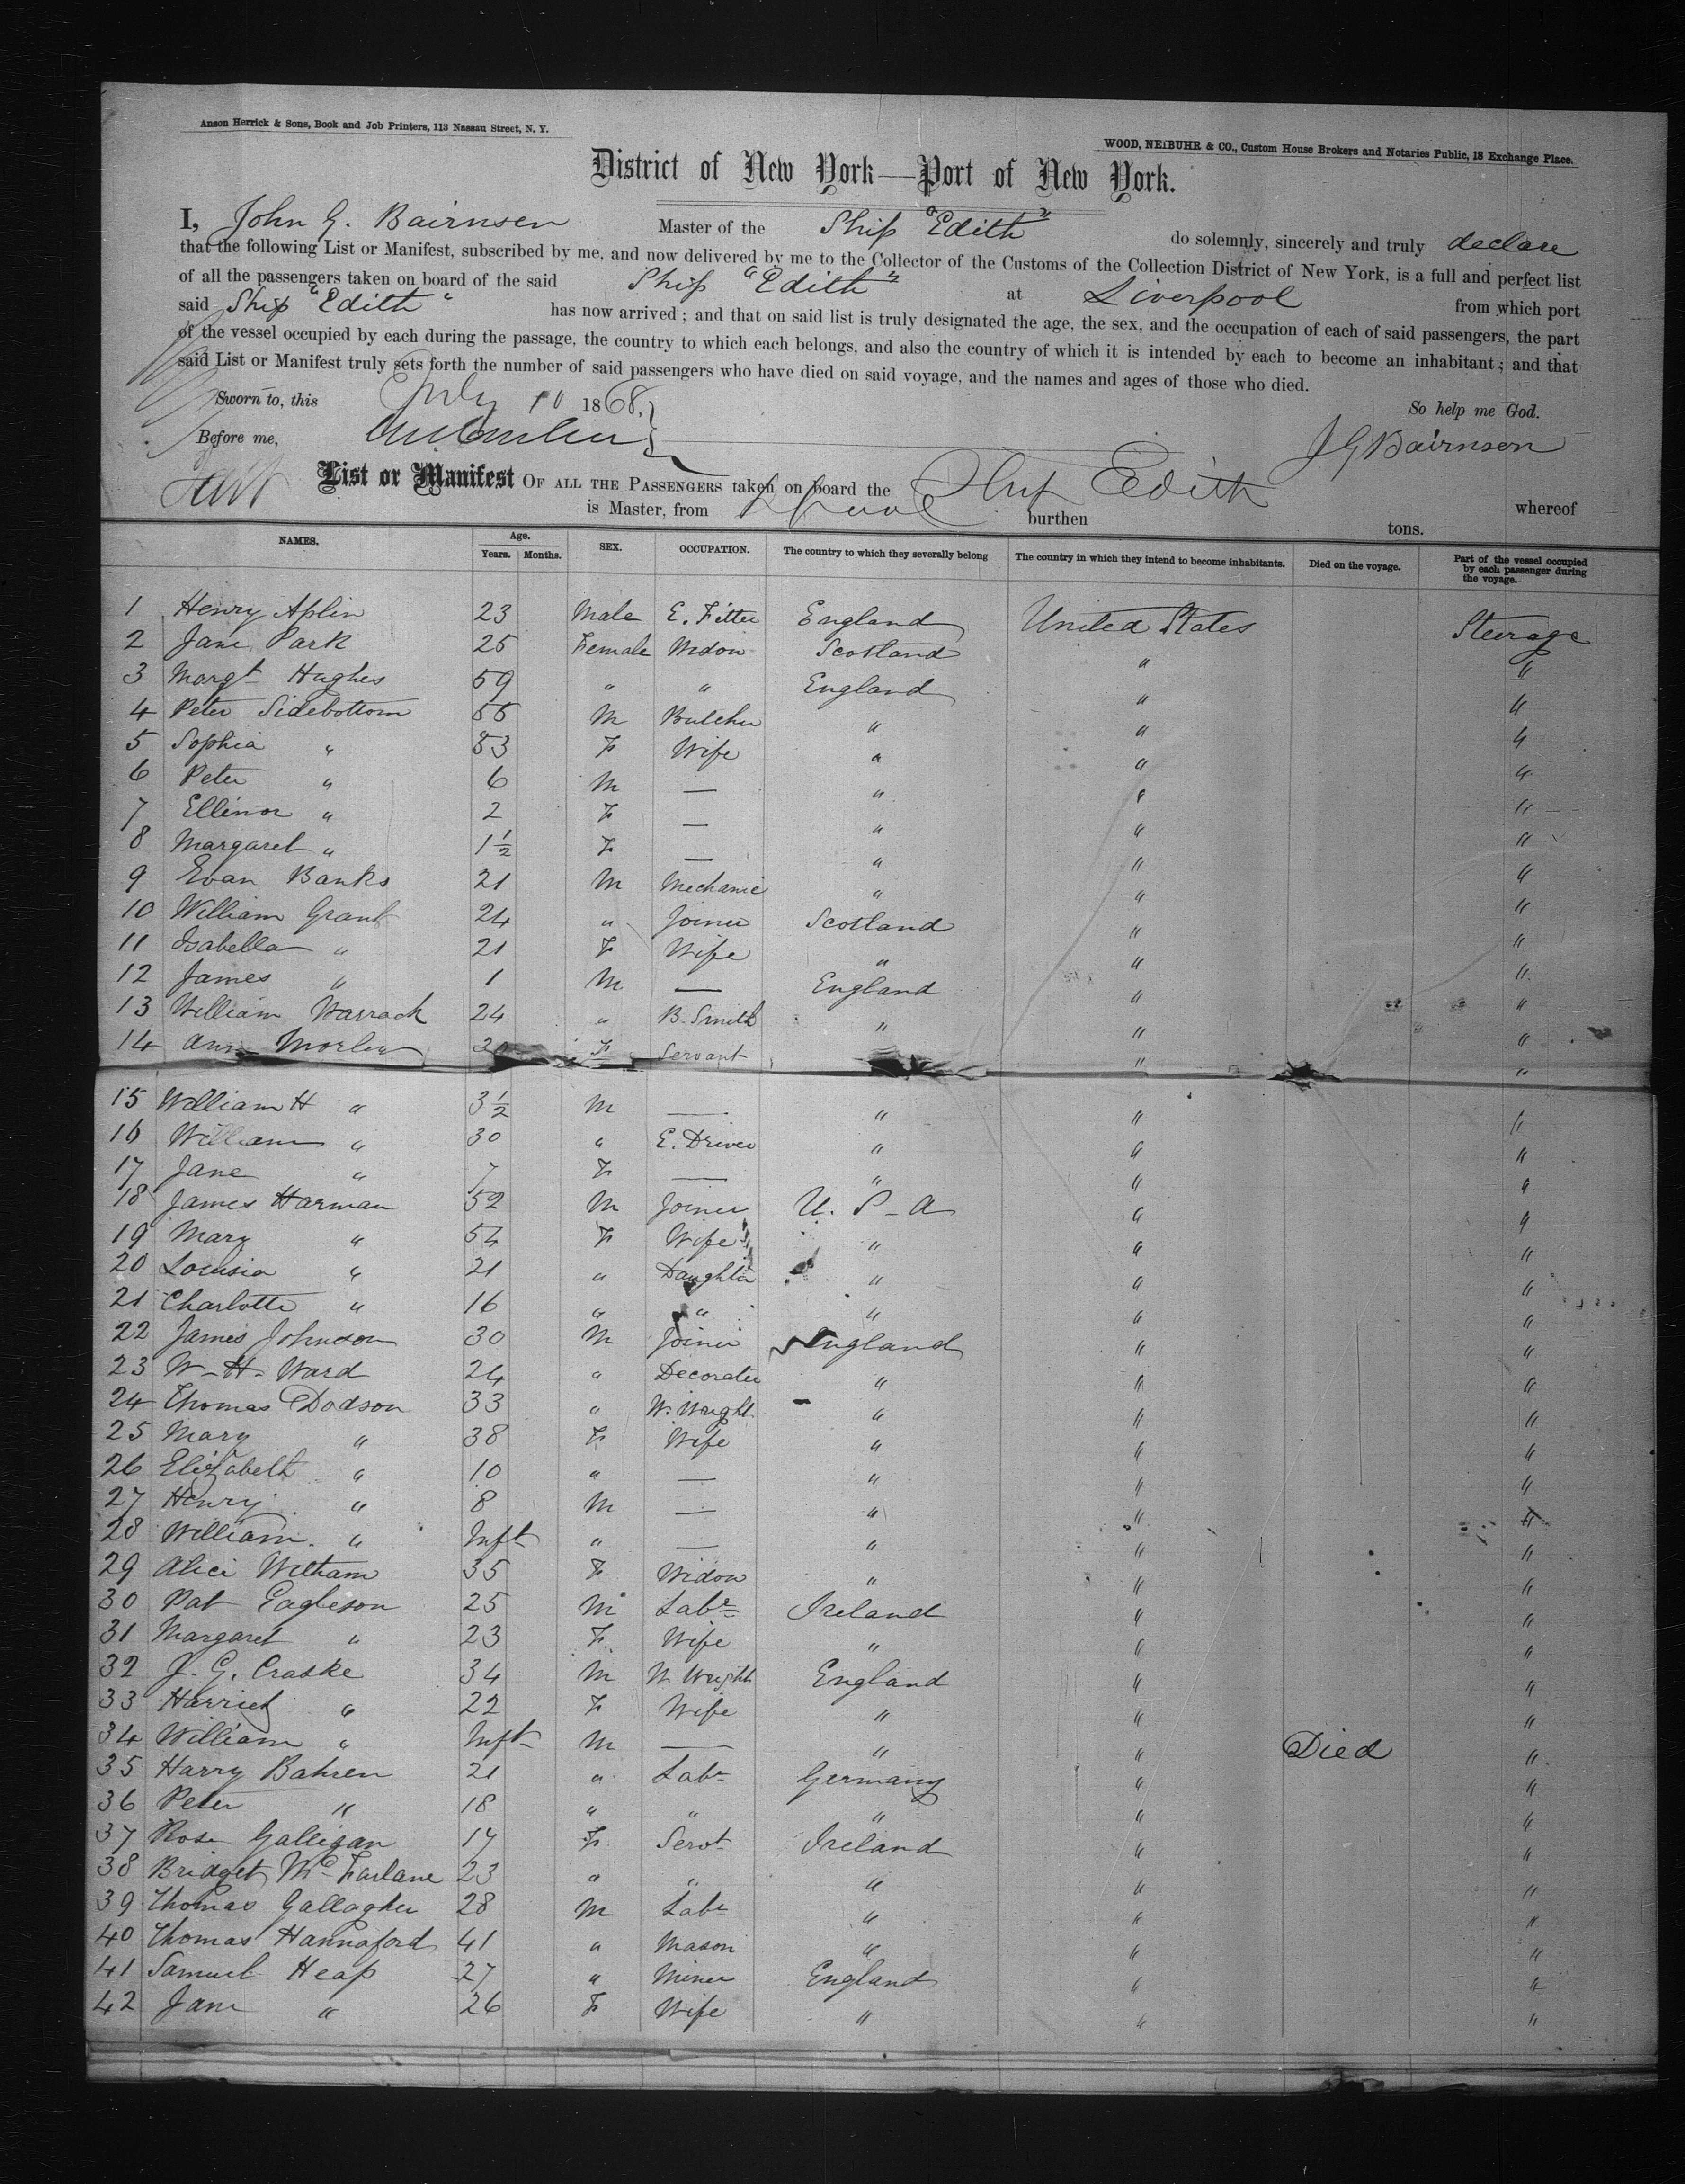 Anson Herrick & Sons, Book and Job Printers, 113 Nassau Street, N. Y.
WOOD, NEIBUHR & CO., Custom House Brokers and Notaries Public, 18 Exchange Place.
District of New York—Port of New York.
I, John G. Bairnsen Master of the Ship "Edith" do solemnly, sincerely and truly declare
that the following List or Manifest, subscribed by me, and now delivered by me to the Collector of the Customs of the Collection District of New York, is a full and perfect list
of all the passengers taken on board of the said Ship "Edith" at Liverpool from which port
said Ship "Edith" has now arrived; and that on said list is truly designated the age, the sex, and the occupation of each of said passengers, the part
of the vessel occupied by each during the passage, the country to which each belongs, and also the country of which it is intended by each to become an inhabitant; and that
said List or Manifest truly sets forth the number of said passengers who have died on said voyage, and the names and ages of those who died.
Sworn to, this July 10 1868, So help me God.
Before me, J G Bairnson
List or Manifest OF ALL THE PASSENGERS taken on board the Ship Edith whereof
is Master, from L'pool burthen tons.
NAMES. Age. Years. Months. SEX. OCCUPATION. The country to which they severally belong The country in which they intend to become inhabitants. Died on the voyage. Part of the vessel occupied by each passenger during the voyage.
1 Henry Aplin 23 Male E. Fitter England United States Steerage
2 Jane Park 25 Female Widow Scotland " "
3 Margt Hughes 59 " " England " "
4 Peter Sidebottom 55 M Butcher " " "
5 Sophia " 53 F Wife " " "
6 Peter " 6 M — " " "
7 Ellinor " 2 F — " " "
8 Margaret " 1½ F — " " "
9 Evan Banks 21 M Mechanic " " "
10 William Grant 24 " Joiner Scotland " "
11 Isabella " 21 F Wife " " "
12 James " 1 M — England " "
13 William Warrack 24 " B. Smith " " "
14 Ann F Servant " "
15 William H " 3½ M — " " "
16 William " 30 " E. Driver " " "
17 Jane " 7 F — " " "
18 James Harman 52 M Joiner U. S. A " "
19 Mary " 54 F Wife " " "
20 Louisia " 21 " Daughter " " "
21 Charlotte " 16 " " " " "
22 James Johnson 30 M Joiner England " "
23 W. H. Ward 24 " Decorater " " "
24 Thomas Dodson 33 " W. Wright " " "
25 Mary " 38 F Wife " " "
26 Elizabeth " 10 " — " " "
27 Henry " 8 M — " " "
28 William " Inft " — " " "
29 Alice Witham 35 F Widow " " "
30 Pat Eagleson 25 M Labr Ireland " "
31 Margaret " 23 F Wife " " "
32 J. G. Craske 34 M W. Wright England " "
33 Harriet " 22 F Wife " " "
34 William " Inft M — " " Died "
35 Harry Bahren 21 " Labr Germany " "
36 Peter " 18 " " " " "
37 Rose Galligan 17 F Servt Ireland " "
38 Bridget McFarlane 23 " " " " "
39 Thomas Gallagher 28 M Labr " " "
40 Thomas Hannaford 41 " Mason " " "
41 Samuel Heap 27 " Miner England " "
42 Jane " 26 F Wife " " "